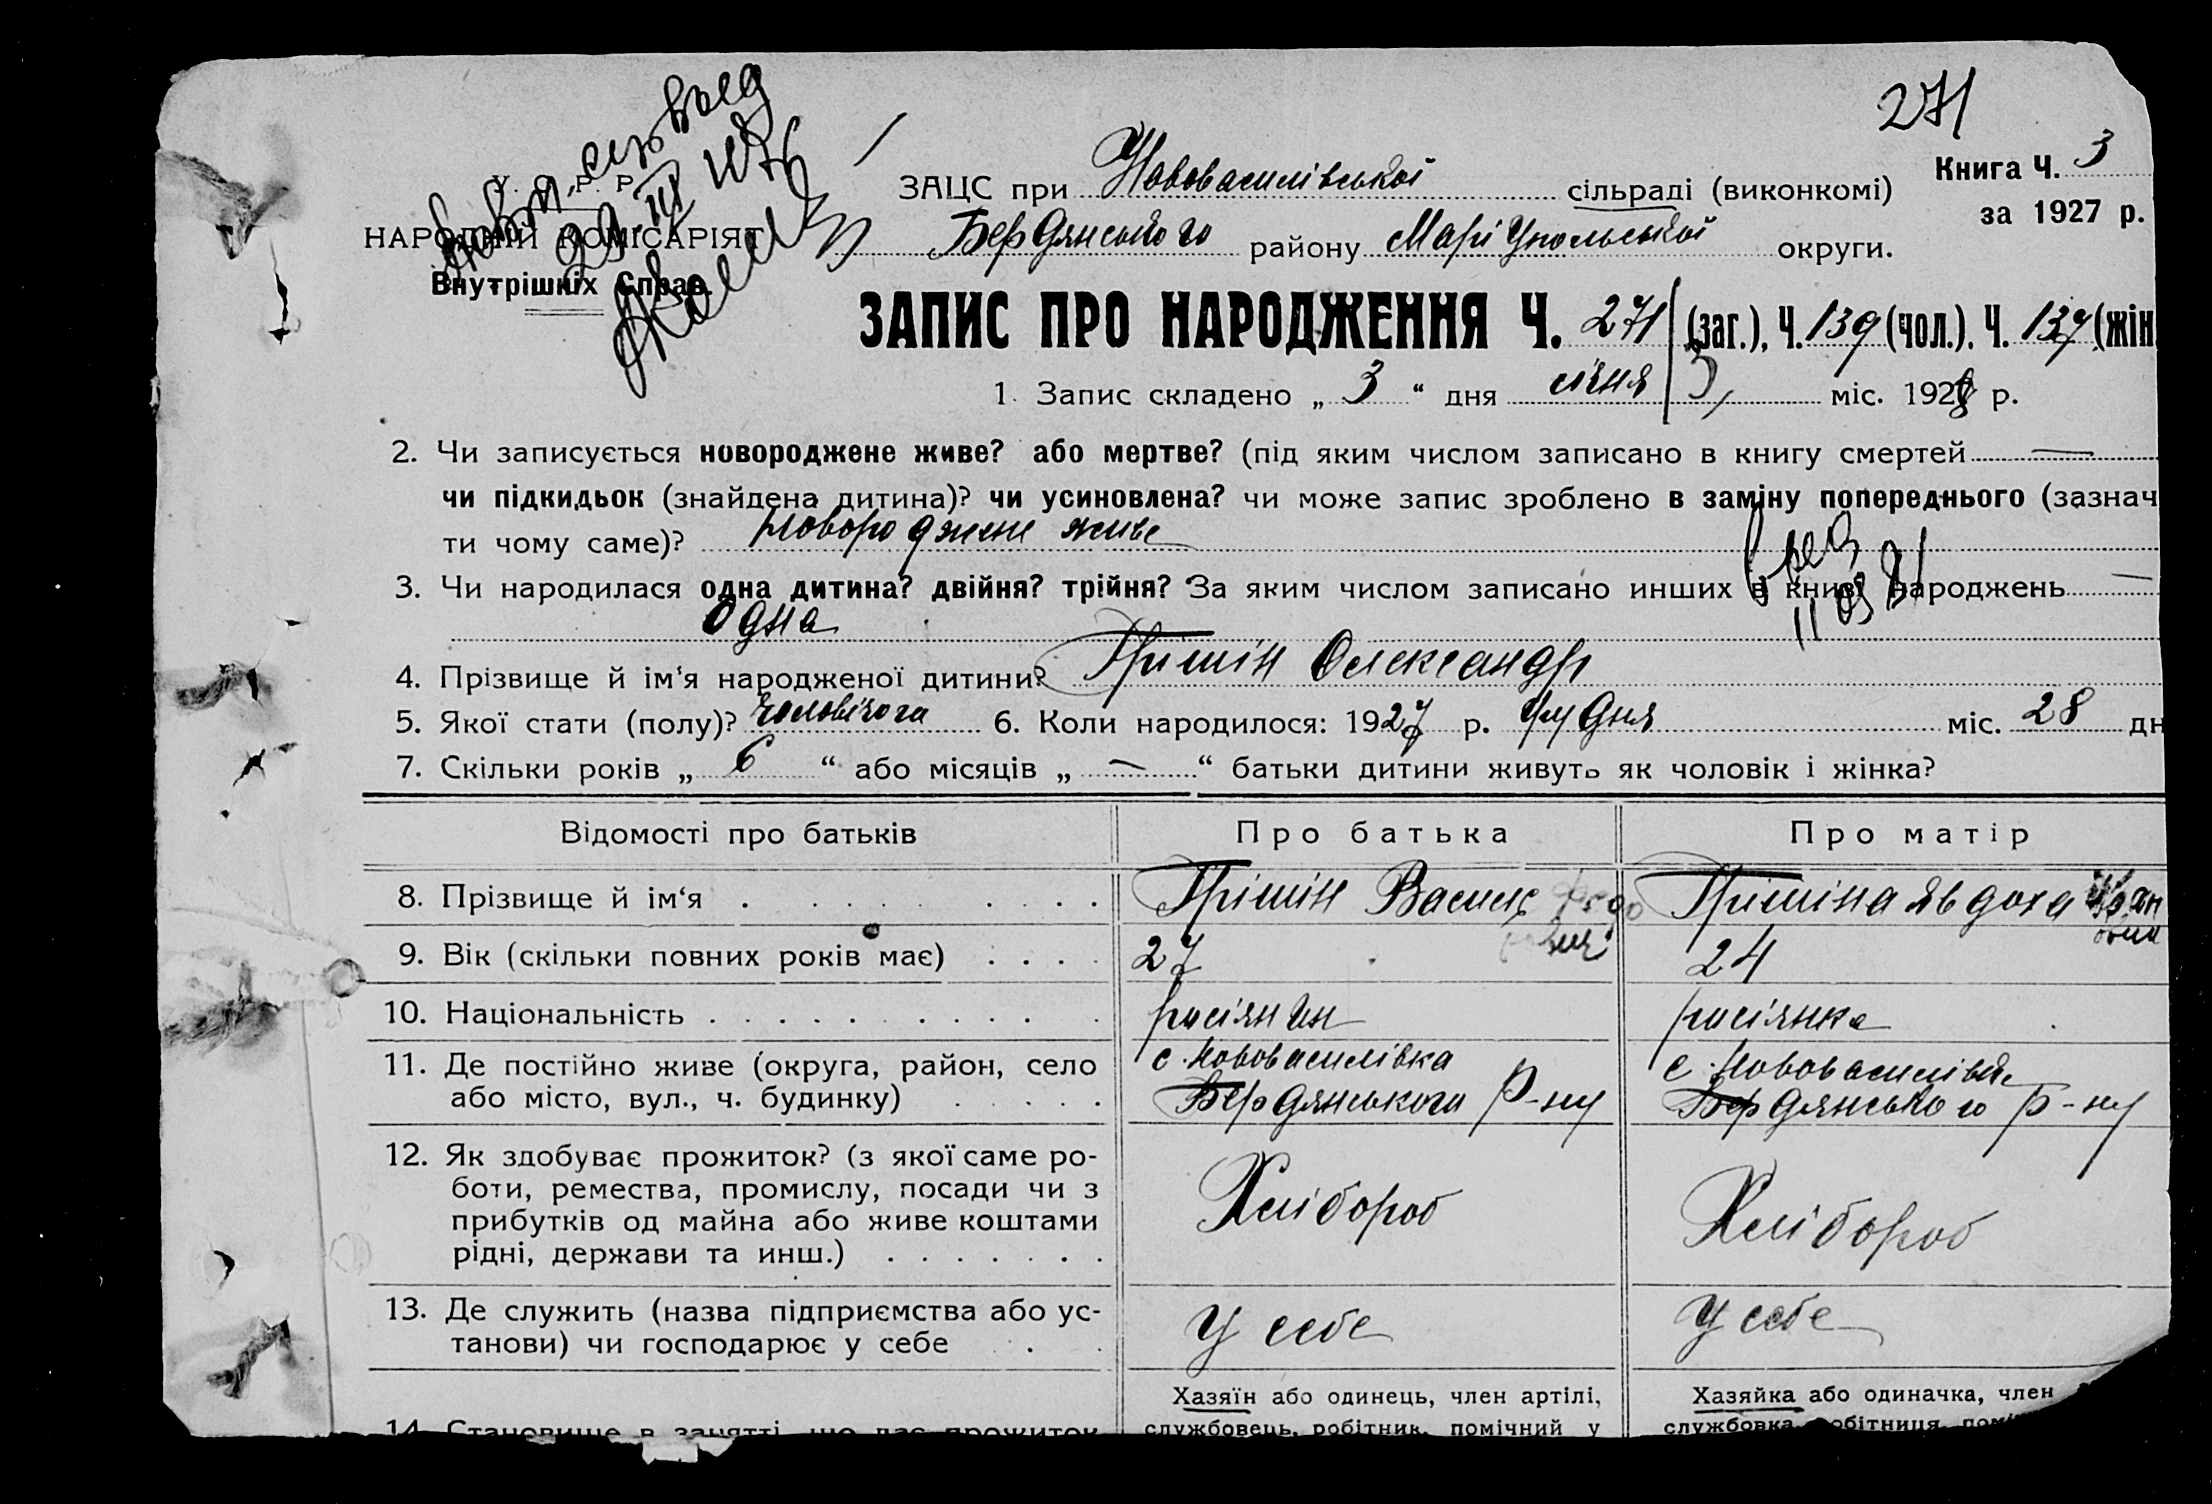 271
Книга Ч. 3
за 1927 р.
У. С. Р. Р.
НАРОДНИЙ КОМІСАРІЯТ
Внутрішніх Справ.
ЗАЦС при Нововасилівської сільраді (виконкомі)
Бердянського району Маріупольської округи.
ЗАПИС ПРО НАРОДЖЕННЯ Ч. 271 (заг.), Ч. 139 (чол.). Ч. 137 (жін
1. Запис складено „ 3 “ дня січня міс. 1928 р.
2. Чи записується новороджене живе? або мертве? (під яким числом записано в книгу смертей —
чи підкидьок (знайдена дитина)? чи усиновлена? чи може запис зроблено в заміну попереднього (зазнач
ти чому саме)? новороджене живе
3. Чи народилася одна дитина? двійня? трійня? За яким числом записано инших в книзі народжень —
одна
4. Прізвище й ім‘я народженої дитини? Грішін Олександр
5. Якої стати (полу)? чоловічога 6. Коли народилося: 1927 р. грудня міс. 28 дн
7. Скільки років „ 6 “ або місяців „ — “ батьки дитини живуть як чоловік і жінка?
Відомості про батьків Про батька Про матір
8. Прізвище й ім‘я . . . . . . . . . Грішін Василь Федо Грішіна Явдоха Іван
9. Вік (скільки повних років має) . . . . 27 24
10. Національність . . . . . . . . . росіянин росіянка
11. Де постійно живе (округа, район, село с. Нововасилівка с. Нововасилівка
або місто, вул., ч. будинку) . . . . . Бердянського р-ну Бердянського р-ну
12. Як здобуває прожиток? (з якої саме ро-
боти, ремества, промислу, посади чи з
прибутків од майна або живе коштами Хлібороб Хлібороб
рідні, держави та инш.) . . . . . . .
13. Де служить (назва підприємства або ус-
танови) чи господарює у себе . . У себе У себе
Хазяїн або одинець, член артілі, Хазяйка або одиначка, член
14. Становище в занятті, що дає прожиток службовець, робітник, помічний у службовка, робітниця